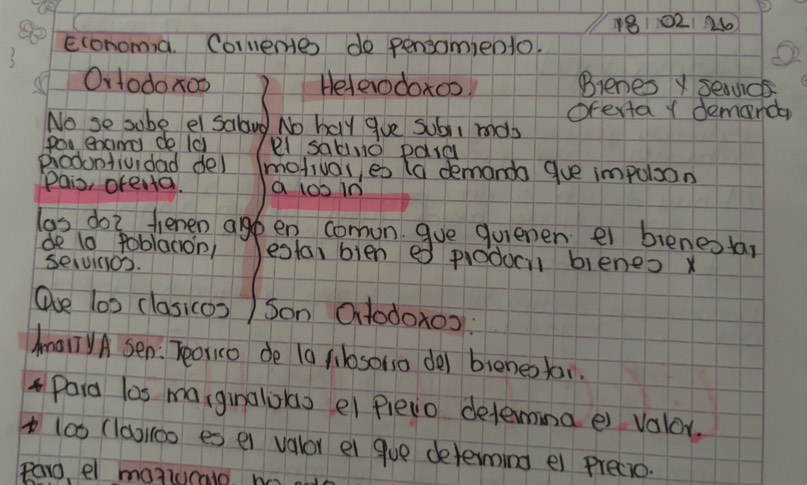 18 02 26
Economia. Corrientes de pensamiento.
Ortodoxos Heterodoxos. Bienes y servicios
Oferta y demanda
No se sube el salario No hay que subir mas
por encima de la el salario para
produntividad del motivar, es la demanda que impulsan
pais, oferta. a los in
las doz tienen algo en comun. que quieren el bienestar
de la Poblacion, estar bien es producir bienes y
servicios.
Que los clasicos son Ortodoxos:
AmaiTYA Sen: Teorico de la filosofia del bienestar.
* Para los marginalistas el Precio determina el valor.
* los Clasicos es el valor el que determina el precio.
Para el